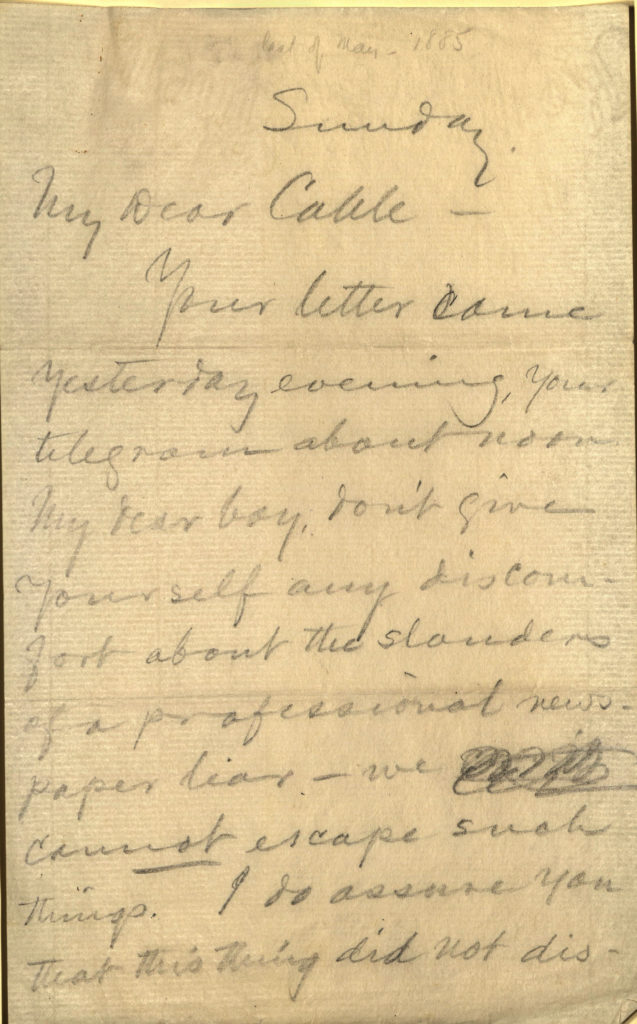 last of May - 1885
Sunday.
My Dear Cable —
Your letter came
yesterday evening, your
telegram about noon
My dear boy, don't give
yourself any discom-
fort about the slanders
of a professional news-
paper liar — we
cannot escape such
things. I do assure you
that this thing did not dis-